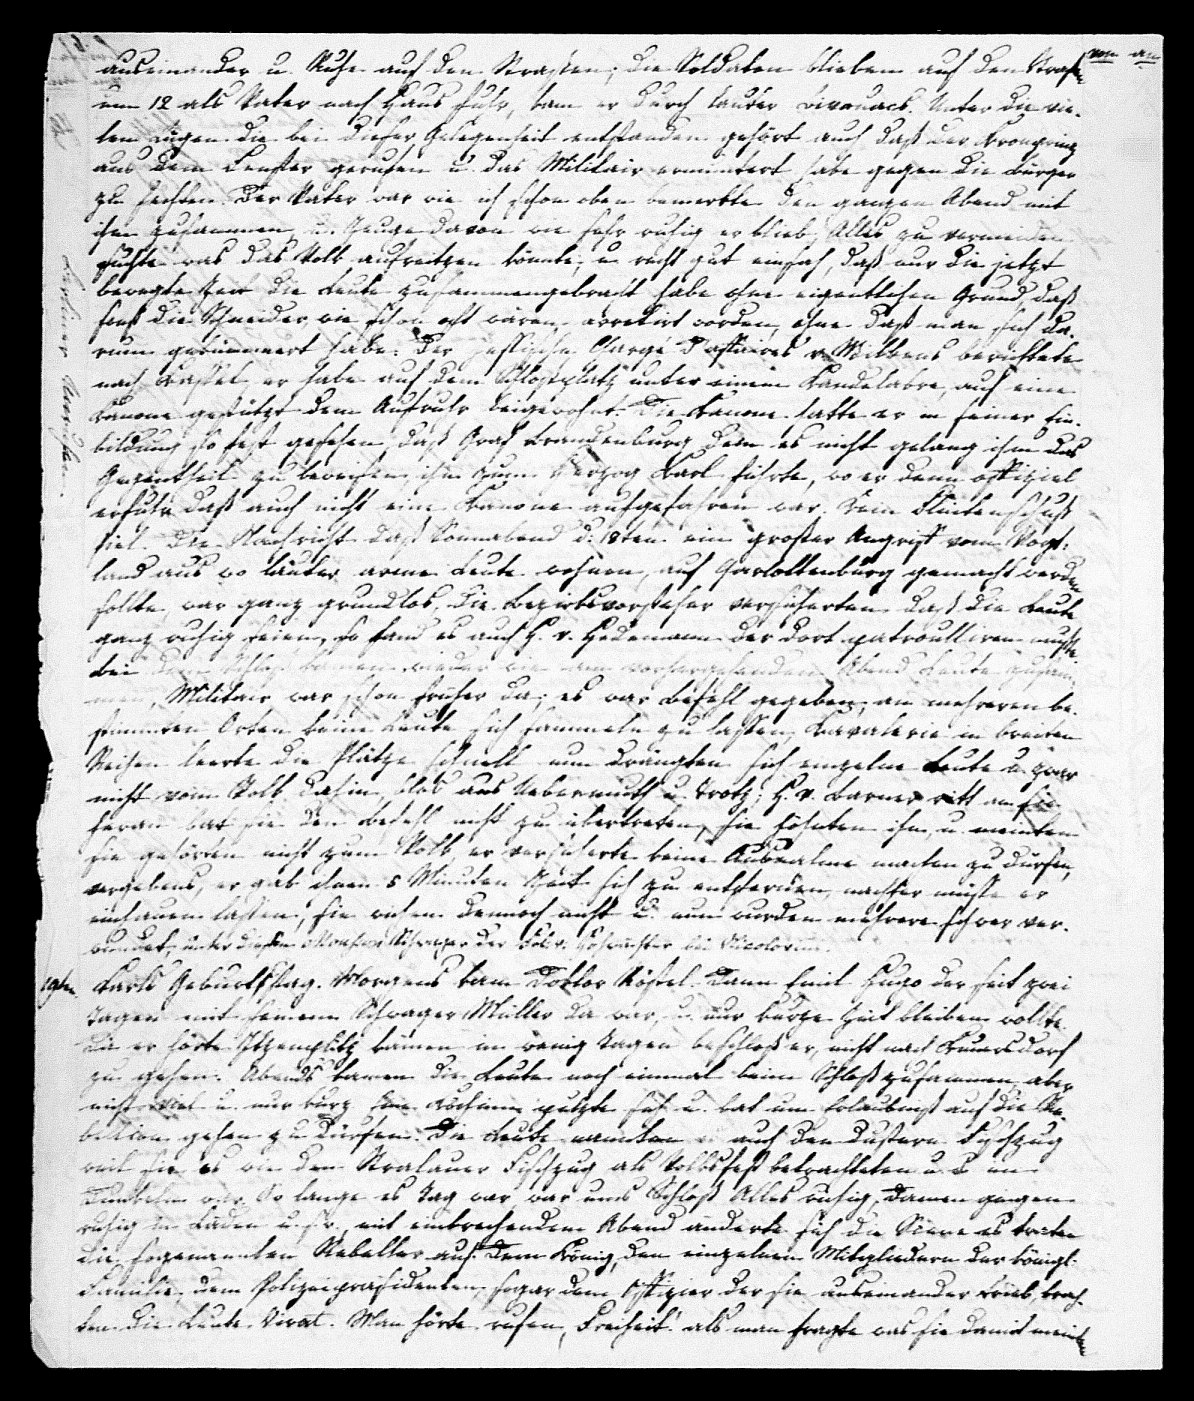 auseinander u. Ruhe auf den Strassen; die Soldaten blieben auf den Straß
um 12 als Vater nach Haus fuhr, kam er durch lauter Bivouacs. Unter die vie-
len Lügen die bei dieser Gelegenheit entstanden gehört auch daß der Kronprinz
aus dem Fenster gerufen u. das Militair ermuntert habe gegen die Bürger
zu fechten. Der Vater war wie ich schon oben bemerkte den ganzen Abend mit
ihm zusammen, u. Zeuge davon wie sehr ruhig er blieb, Alles zu vermeiden
suchte was das Volk aufreitzen könnte, u. recht gut einsah, daß nur die jetzt
bewegte Zeit die Leute zusammengebracht habe ohne eigentlichen Grund, daß
sonst die Schneider, wie schon oft wären arretirt worden, ohne daß man sich da-
rum gekümmert habe. Der hessische Chargé d'affaires v. Wilkens berichtete
nach Kassel er habe auf dem Schloßplatz unter einem Kandelabre, auf eine
Kanone gestützt dem Aufruhr beigewohnt. Die Kanone hatte er in seiner Ein-
bildung so fest gesehen, daß Graf Brandenburg dem es nicht gelang ihm das
Gegentheil zu beweisen, ihn zum Herzog Karl führte, wo er denn offiziel
erfuhr daß auch nicht eine Kanone aufgefahren war. Kein Flintenschuß
fiel. Die Nachricht daß Sonnabend d. 18ten ein großer Angriff vom Vogt-
land aus wo lauter arme Leute wohnen, auf Charlottenburg gemacht werden
sollte, war ganz grundlos, die Bezirksvorsteher versicherten daß die Leute
ganz ruhig seien, so fand es auch H. v. Hedemann der dort patroulliren mußte.
Bei dem Schloß kamen wieder wie am vorhergehenden Abend Leute zusam-
men, Militair war schon früher da; es war Befehl gegeben, an mehreren be-
stimmten Orten keine Leute sich sammeln zu lassen, Kavalerie in breiten
Reihen leerte die Plätze schnell nun drängten sich einzelne Leute u. zwar
nicht vom Volk dahin, blos aus Uebermuth u. Trotz; H. v. Barner ritt an sie
heran bat sie den Befehl nicht zu übertreten, sie höhnten ihn u. meinten
sie gehörten nicht zum Volk, er versicherte keine Ausnahme machen zu dürfen,
vergebens, er gab ihnen 5 Minuten Zeit sich zu entfernen, nachher müsse er
einhauen lassen, sie wichen dennoch nicht u. nun wurden mehrere schwer ver-
wundet, unter diesen Schwager der bei Nicolovius.
19ten Karls Geburtstag. Morgens kam Doktor Rößel. Dann Emil Hugo der seit zwei
Tagen mit seinem Schwager Müller da war, u. nur kurze Zeit bleiben wollte.
Da er hörte Itzenplitz kämen in wenig Tagen beschloß er, nicht nach Kunersdorf
zu gehen. Abends kamen die Leute noch einmal beim Schloß zusammen, aber
nicht viel u. nur kurz. Eine Köchinn putzte sich u. bat um Erlaubniß auf die Re-
bellion gehen zu dürfen. Die Leute nannten es auch den Fischzug
weil sie es wie den Stralauer Fischzug als Volksfest betrachteten u.
war. So lange es Tag war war ums Schloß Alles ruhig, Damen gingen
ruhig in Läden u.s.w. mit einbrechendem Abend änderte sich die Scene es traten
die sogenannten Rebeller auf. Dem König, den einzelnen Mitgliedern der königl.
Familie, dem Polizeipräsidenten, sogar dem Offizier der sie auseinander trieb, brach-
ten die Leute Vivat. Man hörte rufen, Freiheit! als man fragte was sie damit meint
Berliner